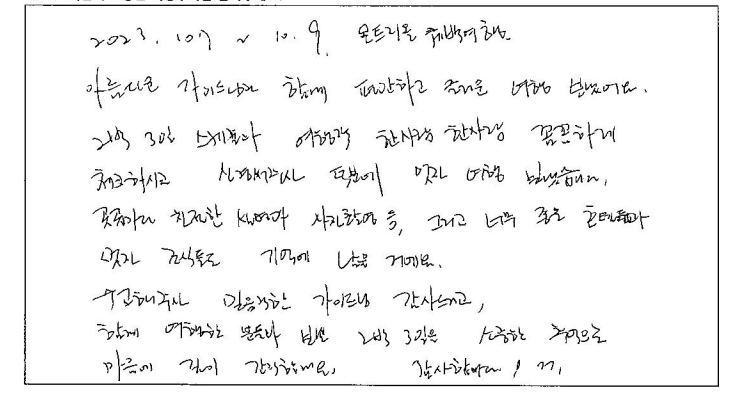 2023. 10.7 ~ 10. 9. 몬트리올 퀘백여행.
아름다운 가이드님과 함께 편안하고 즐거운 여행 보냈어요.
2박 3일 스케쥴과 여행객 한사람 한사람 꼼꼼하게
체크하시고 신경써주신 덕분에 멋진 여행 보냈습니다.
곳곳마다 친절한 설명과 사진촬영 등, 그리고 너무 좋은 호텔과
멋진 음식들도 기억에 남을 거에요.
수고해주신 믿음직한 가이드님 감사하고,
함께 여행한 분들과 보낸 2박 3일은 소중한 추억으로
마음에 깊이 간직할께요. 감사합니다! ^^.